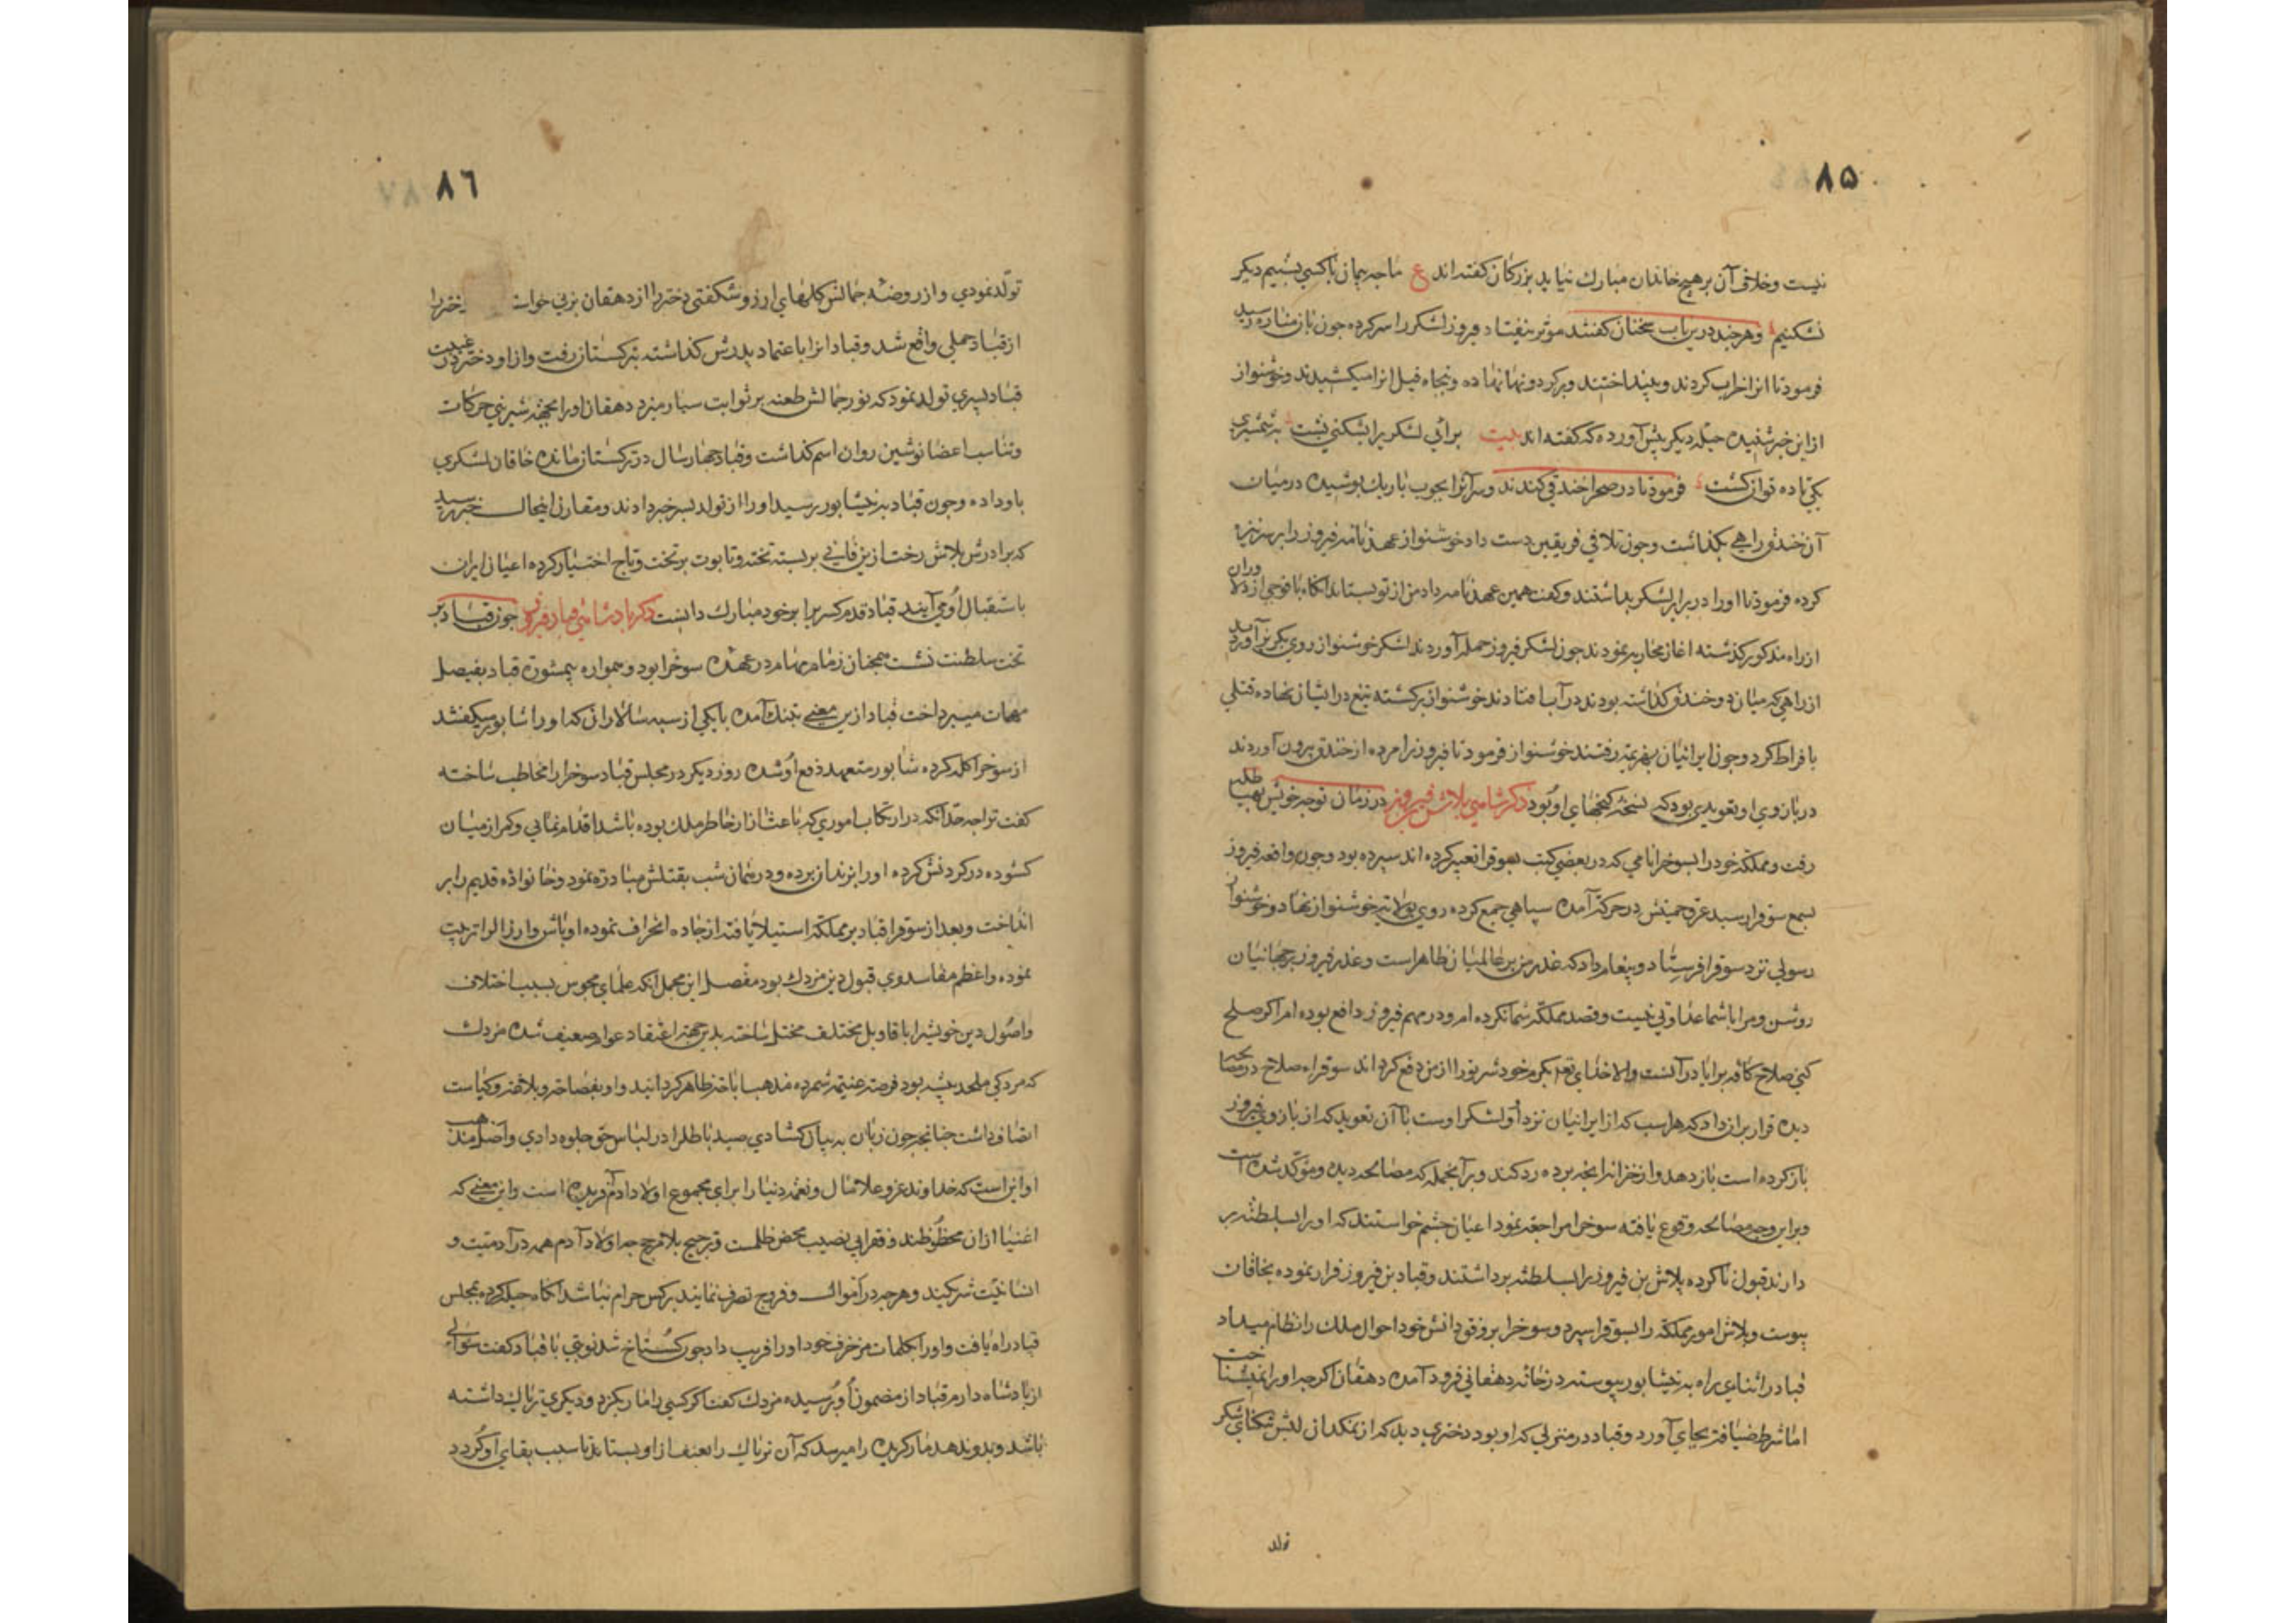 ۸۵
نیست وخلاف آن بر هیچ خاندان مبارك نیاید بزرکان کفته اند ع ماجه پیمان باکسی بستیم دیکر
نشکنیم وهر جند درین باب سخنان کفتند موثر نیفتاد فیروز لشکر را سر کرده جون باز مناره رسید
فرمود تا انرا خراب کردند وبینداختند وبر کردونها نهاده وپنجاه فیل انرا میکشیدند وخوشنواز
از این خبر شنیده حیله دیکر پیش آورده که کفته اند بیت برائی لشکری را بشکنی پشت بشمشیری
یکی تا ده توان کشت فرمود تا در صحرا خندقی کندند وسر آنرا بجوب باریك پوشیده درمیان
آن خندق راهی بکذاشت وجون تلاقی فریقین دست داد خوشنواز عهدنامه فیروز را بر سر نیزه
کرده فرمود تا اورا در برابر لشکر بداشتند وکفت همین عهدنامه داد من از تو بستاند انکاه با فوجی از دلاوران
از راه مذکور کذشته اغاز محاربه نمودند جون لشکر فیروز حمله آوردند لشکر خوشنواز روی بکریز آوردند
از راهی که میان دو خندق کذاشته بودند در آب افتادند خوشنواز برکشته تیغ در ایشان نهاده قتلی
بافراط کرد وجون ایرانیان بهزیمت رفتند خوشنواز فرمود تا فیروز را مرده از خندق بیرون آوردند
در بازوی او تعویذی بود که نسخه کنجهای او بود ذکر شاهی بلاش فیروز در زمان توجه خویش بهیاطله
رفت ومملکة خود را بسوخرا نامی که در بعضی کتب بسوقرا تعبیر کرده اند سپرده بود وجون واقعه فیروز
بسمع سوقرا رسید عرق حمیتش در حرکة آمده سپاهی جمع کرده روی بولایة خوشنواز نهاد وخوشنواز
رسولی نزد سوقرا فرستاد وپیغام داد که عذر من بر عالمیان ظاهر است وغدر فیروز بر جهانیان
روشن ومرا باشما عداوتی نیست وقصد مملکة شما نکرده ام ودر مهم فیروز دافع بوده ام اکر صلح
کنی صلاح کافه برایا در آنست والا خدای تع بکرم خود شر تورا از من دفع کرداند سوقرا صلاح در مصالحه
دیده قرار بران داد که هراسب که از ایرانیان نزد او ولشکر اوست باآن تعوید که از بازوی فیروز
باز کرده است باز دهد واز خزانه انجه برده رد کند وبر آنجمله که مصالحه دیده ومؤکد شده است
وبراین وجه مصالحه وقوع یافته سوخرا مراجعة نمود اعیان جشم خواستند که اورا بسلطنة بر
دارند قبول ناکرده بلاش بن فیروز را بسلطنة برداشتند وقباد بن فیروز فرار نموده بخاقان
پیوست وبلاش امور مملکة را بسوقرا سپرد وسوخرا بروفق دانش خود احوال ملك را نظام میداد
قباد در اثنای راه به نیشابور پیوسته در خانه دهقانی فرود آمده دهقان اکرجه اورا نمیشناخت
اما شرط ضیافة بجای آورد وقباد در منزلی که او بود دختری دید که از نمکدان لبش شکر
تولد
۸٦
تولد نمودی واز روضه جمالش کلهای ارزو شکفتی دختر را از دهقان بزنی خواست دختر را
از قباد حملی واقع شد وقباد انرا باعتماد پدرش کذاشته بترکستان رفت واز او دختر در غیبت
قباد پسری تولد نمود که نور جمالش طعنه بر ثوابت سیار میزد دهقان اورا بجهة شیرینی حرکات
وتناسب اعضا نوشین روان اسم کذاشت وقباد جهار سال در ترکستان مانده خاقان لشکری
باو داده وجون قباد به نیشابور رسید اورا از تولد پسر خبر دادند ومقارن اینحال خبر رسید
که برادرش بلاش رخت ازین فانی بر بسته تخته وتابوت بر تخت وتاج اختیار کرده اعیان ایران
باستقبال او می آیند قباد قدم پسر را بر خود مبارك دانست ذکر بادشاهی قباد فیروز جون قباد بر
تخت سلطنت نشست همجنان زمام مهام در عهده سوخرا بود وهمواره بیمشورة قباد بفیصل
مهمات میپرداخت قباد ازین معنی بتنك آمده بایکی از سپه سالاران که اورا شابور میکفتند
از سوخرا کله کرده شابور متعهد دفع او شده روز دیکر در مجلس قباد سوخرا را مخاطب ساخته
کفت تراجه حد آنکه در ارتکاب اموری که باعث ازار خاطر ملك بوده باشد اقدام نمائی وکمر از میان
کشوده در کردنش کرده اورا بزندان برده ودر همان شب بقتلش مبادرة نمود وخانواده قدیم را بر
انداخت وبعد از سوقرا قباد بر مملکة استیلا یافته از جاده انحراف نموده اوباش وارذال را تربیت
نموده واعظم مفاسد وی قبول دین مزدك بود مفصل این مجمل آنکه علمای مجوس بسبب اختلاف
واصول دین خویش را باقاویل مختلف مختل ساخته بدین جهة اعتقاد عوام ضعیف شده مزدك
که مردکی ملحد پیشه بود فرصة غنیمة شمرده مذهب اباحة ظاهر کردانید واو بفصاحة وبلاغة وکیاست
اتصاف داشت جنانجه جون زبان به بیان کشادی صید باطل را در لباس حق جلوه دادی واصل مذهب
او این است که خداوند عز وعلا مال ونعمة دنیا را برای مجموع اولاد ادم آفریده است واین معنی که
اغنیا از ان محظوظند وفقرا بی نصیب محض ظلمست وترجیح بلا مرجح جه اولاد آدم همه در آدمیت و
انسانیت شریکند وهرجه در اموال وفروج تصرف نمایند برکس حرام نباشد انکاه حیله کرده بمجلس
قباد راه یافت واورا بکلمات مزخرف خود اورا فریب داد جون کستاخ شد نوبتی باقباد کفت سوالی
از بادشاه دارم قباد از مضمون او پرسیده مزدك کفت اکر کسی را مار بکزد ودیکری تریاك داشته
باشد وبدو ندهد مار کزیده را میرسد که آن تریاك را بعنف از او بستاند تا سبب بقای او کردد